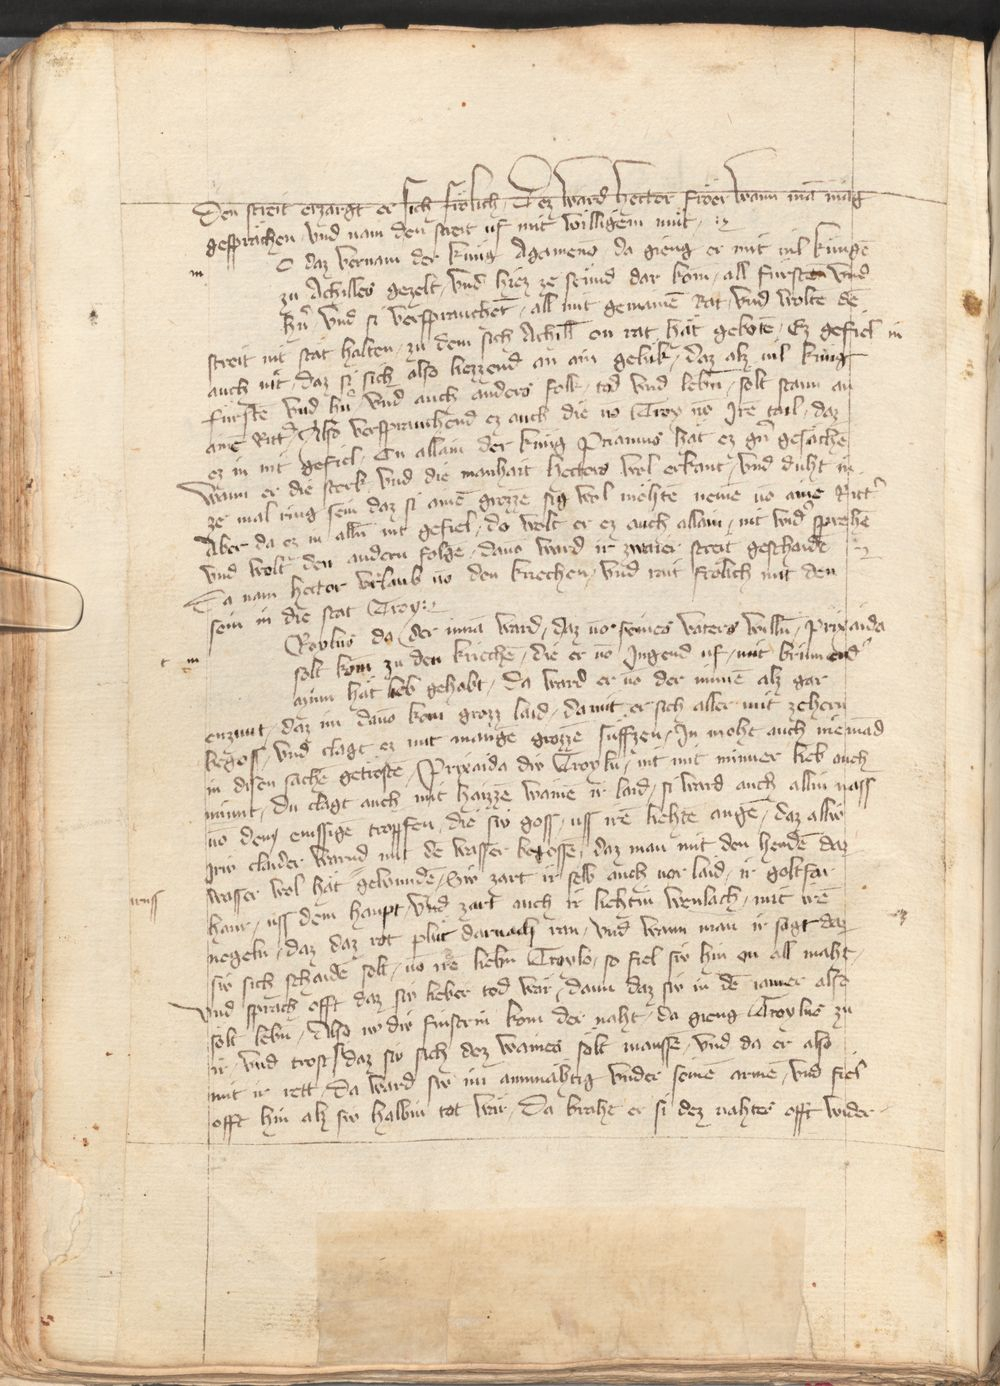 Den streit erzaigt er sich frölich / Dez ward hector fröer wann mā mag
gesprächen / vnd nam den streit vf mit willigem mut /
O daz vernam der küng Agameno / da gieng er mit vil küngē
zu Achilles gezelt / vnd hiez ze stund dar kom / all fürsten vnd
hr̄ / vnd si versprauchent / all mit gemainē Rat / vnd wolte dē
streit nit stät halten / zu dem sich Achill on rat hät gebotē / Ez gefiel in
auch nit / daz si sich also liezzend an ain gelük / daz alz vil küng
fürstē vnd hr̄ / vnd auch anders folk / tod vnd lebn̄ / solt staun an
aine Ritt / Also versprauchend ez auch die vō Troy vō Irē tail / daz
ez in nit gefiel / On allain der küng Priamus hät ez gn̄ gesächē
Wann er die sterk vnd die manhait hectors wol erkant / vnd duht in
ze mal ring sein daz si ainē grozzē sig wol möhte nemē vō aine Ritt
Aber da ez in alln̄ nit gefiel / do wolt er ez auch allain / nit wid sprechē
vnd wolt den andern folgē / davō ward ir zwaier streit geschaidē
Da nam hector vrlaub vō den kriechen / vnd rait frölich mit den
sein in die stat Troy
Roylus do der inna ward / daz vō seines vaters willn̄ / Prixaida
solt kom zu den kriechē / die er vō Jugend vf / mit brinnend
minn hät lieb gehabt / Da ward er vō der minnē alz gar
enzunt / daz im davō kom grozz laid / damit er sich aller mit zehern
begoss / vnd clagt ez mit mangē grozzē süffzen / In moht auch niemād
in disen sachē getröstē / Prixaida div Troylū / nit mit minner lieb auch
minnt / Du clagt auch mit haizzē wainē ir laid / si ward auch allin nass
vō dem emssigē tropffen / die siv goss / vss irē liehtē augē / daz alliv
iriv claider warnd mit dē wasser begossē / daz man mit den hendē daz
wasser wol hät gewundē / Siv zart ir selb auch vor laid / ir goltfar
haur / vss dem haupt / vnd zart auch ir liehtiv wenlach / mit irē
negeln / daz daz rot plut darnach ran / vnd wann man ir sagt daz
siv sich schaidē solt / vō irē liebn̄ Troylo / so fiel siv hin on all maht /
vnd sprach offt daz siv lieber tod wär / dann daz siv in dē iamer also
solt lebn̄ / Also do div finstrin kom der naht / da gieng Troylus zu
ir / vnd trost si daz siv sich dez wainēs solt maussē / vnd da er also
mit ir rett / Da ward siv im ammähtig vnder seinē armē / vnd fiel
offt hin alz siv halbin tot wär / Da braht er si dez nahtes offt wider